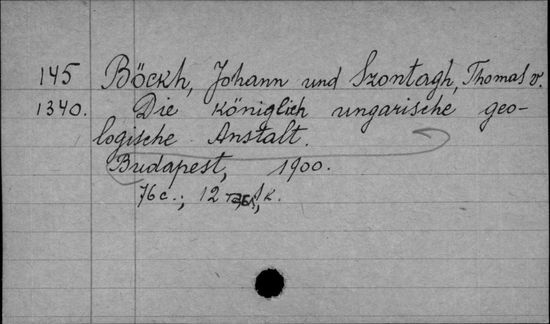 145 Böckh, Johann und Szontagh, Thomas v.
1340. Die königlich ungarische geo-
logische Anstalt.
Budapest, 1900.
76 с.; 12 табл., к.